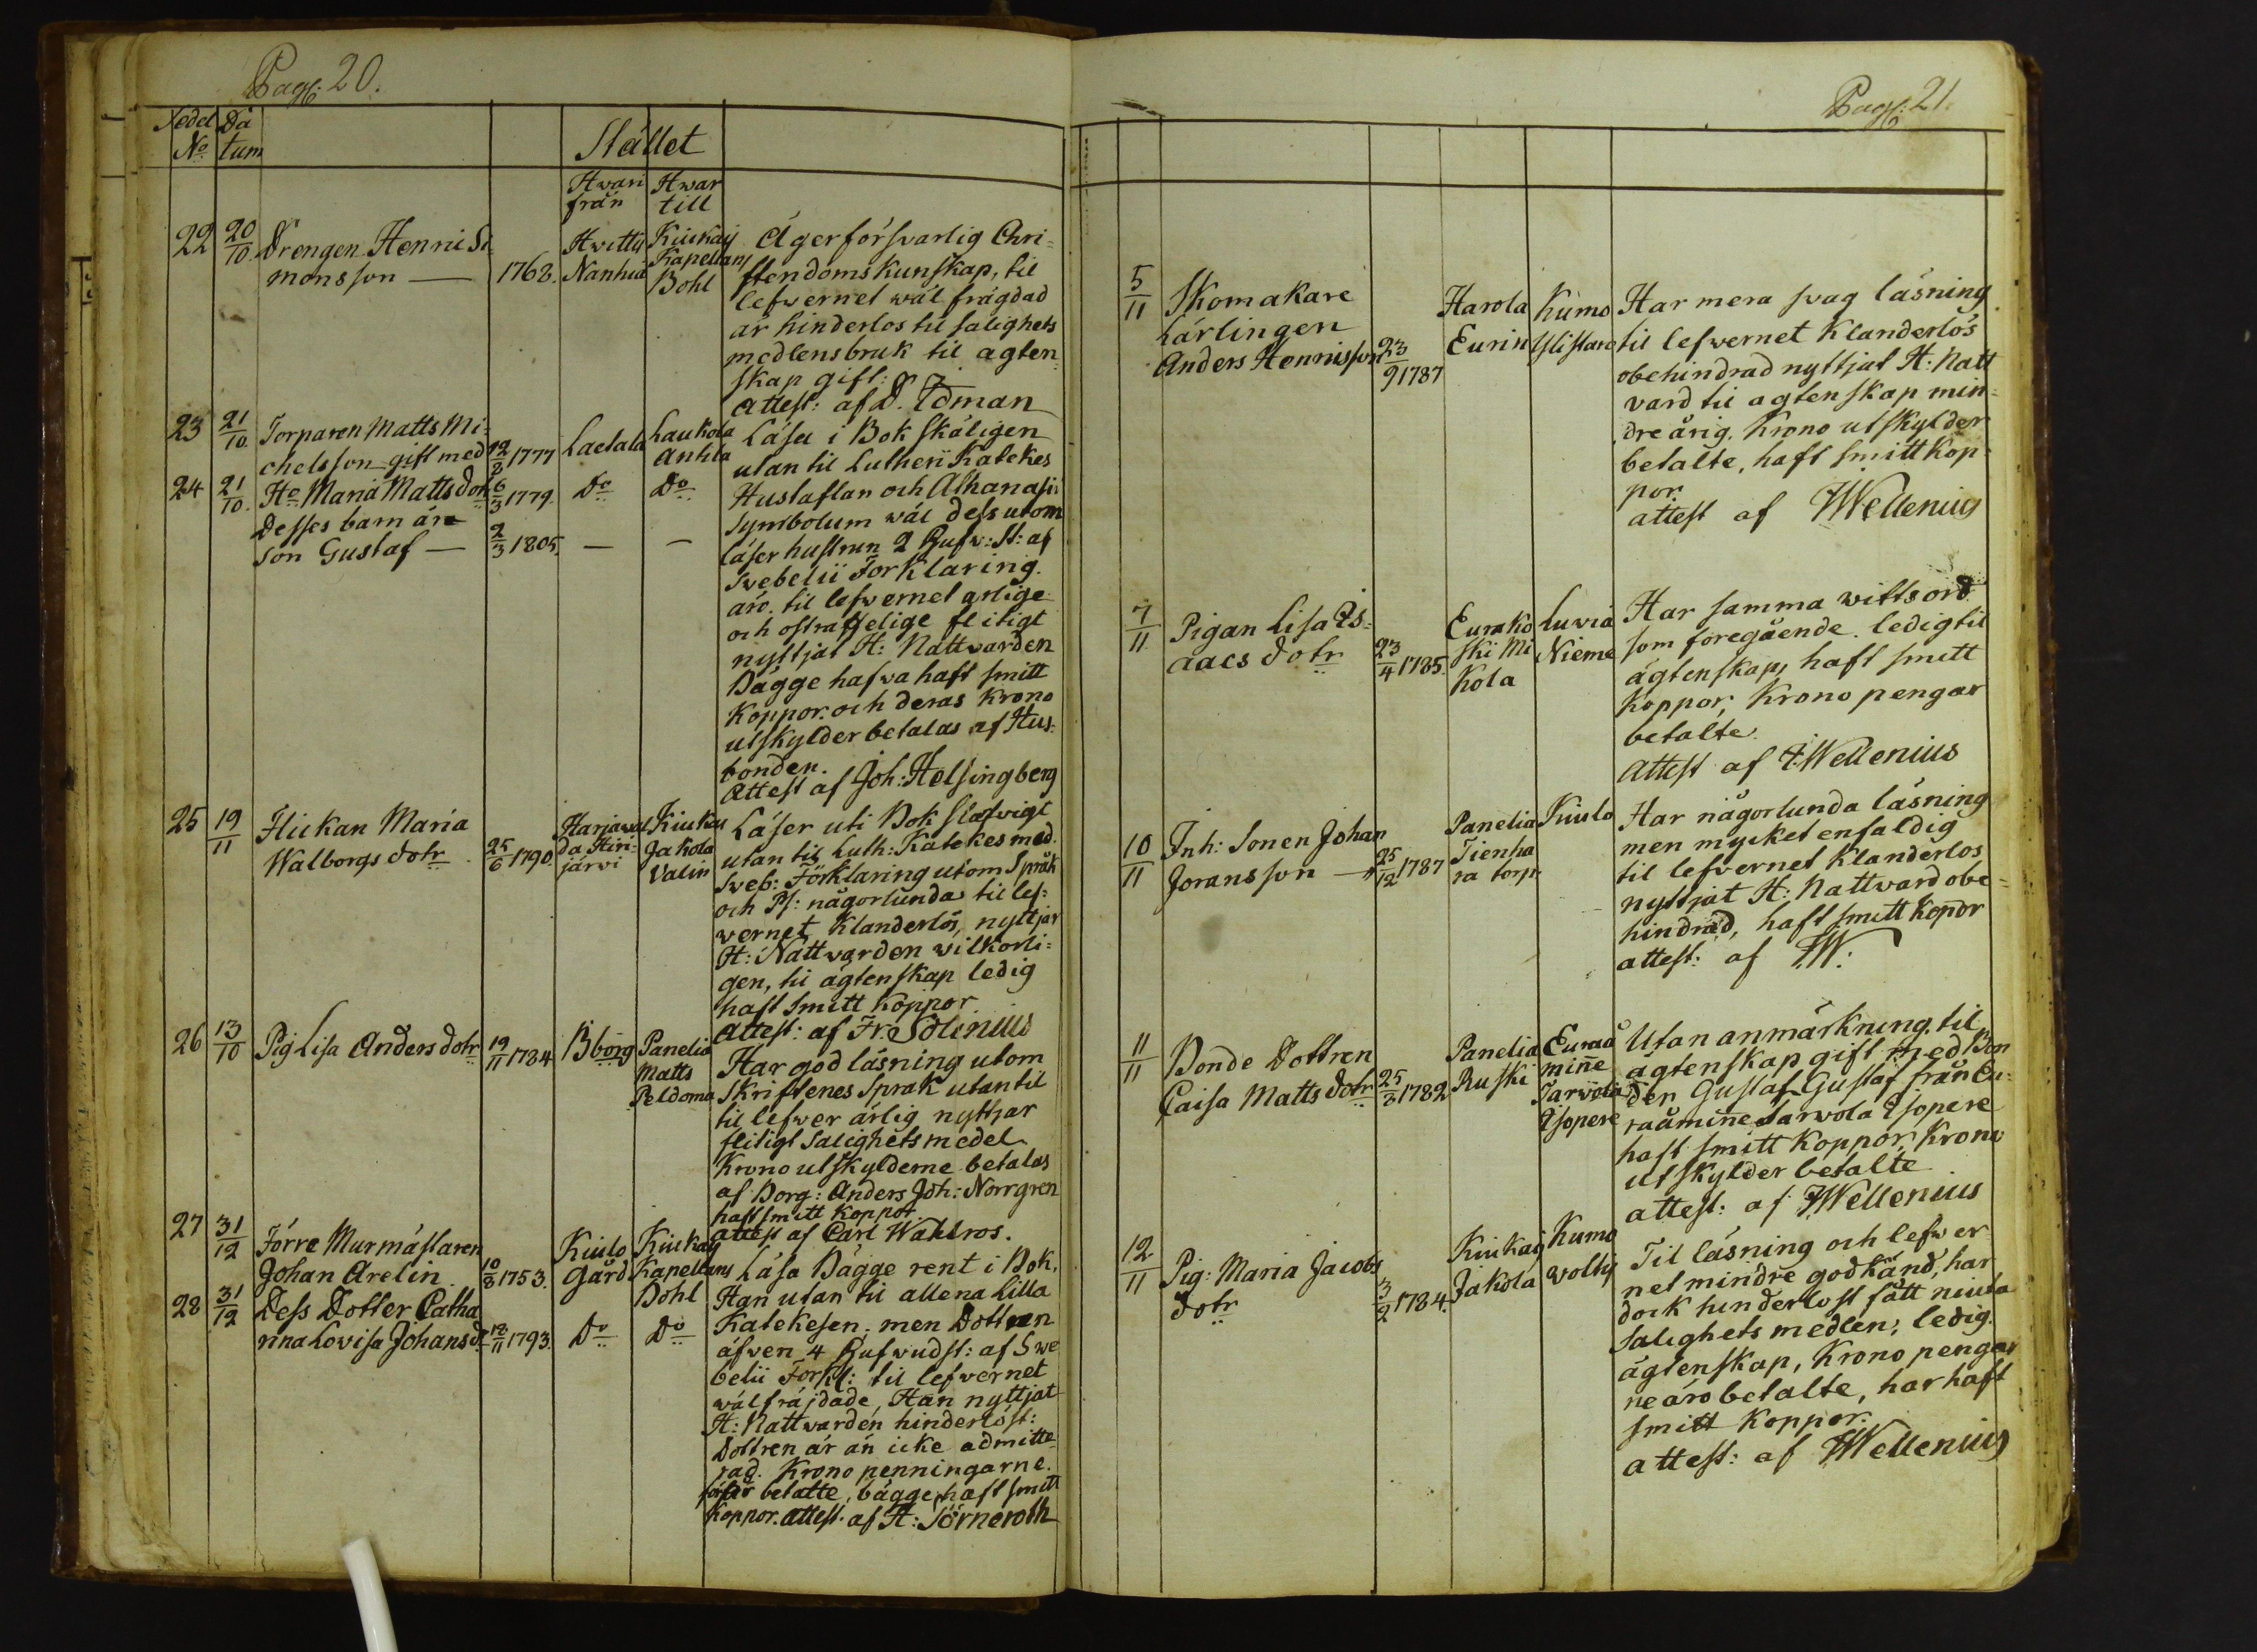 Pag: 20.
Sedel Da
No tum
Stället
Hwari Hwar
från till
22 20/10 Drengen Henric Si
monsson — 1768. Hwitty Nanhia Kiukais Kapellans Bohl
Äger försvarlig Chri=
stendoms Kunskap, til
lefwernet wäl frägdad
är hinderlos til salighets
medlens bruk til ägten
skap gift:
attest: af D. Idman
23 21/10 Torparen Matts Mi=
chelsson gift med 12/8 1777 Laetala Laukola Anhla
24 21/10. Ho Maria Mattsdotr 6/3 1779. Do Do
Desses barn är
son Gustaf — 2/3 1805. — —
Läsa i Bok skäligen
utan til Lutheri Katekes
Hustaflan och Athanasii
Symbolum wäl dessutom
läser hustrun 2 Hufw: St: af
Svebelii Förklaring.
äro til lefwernet ärlige
och ostraffelige flitigt
nyttjat H: Nattvarden
Bägge hafva haft smitt
Koppor. och deras Krono
utskylder betalas af Hus=
bonden.
Attest af Joh: Helsingberg
25 19/11 Flickan Maria
Walborgs dotr 25/6 1790. Harjaval da Hiri järvi Kiukais Jakola Valin
Läser uti Bok slätvigt
utan til Luth: Katekes med
Sveb: Förklaring utom Språk
och Ps: någorlunda til lef=
vernet Klanderlös, nyttjar
H: Nattvarden wilkorli=
gen, til ägtenskap ledig
haft smitt Koppor
attest: af Fr: Solenius
26 13/10 Pig Lisa Anders dotr 19/11 1784 Bborg Panelia Matts Peldoma
Har god läsning utom
Skriftenes Språk utantil
til lefwer ärlig nyttjar
flitigt Salighets medel
Krono utskylderne betalas
af Borg: Anders Joh: Norrgren
haft smitt Koppor.
attest af Carl Wahlros.
27 31/12 Förre Murmästaren
Johan Arelin 10/8 1753. Kiulo Gård Kiukais Kapellans Bohl
28 31/12 Dess Dotter Catha
rina Lovisa Johansd. 12/11 1793. Do Do
Läsa Bägge rent i Bok,
Han utan til allena lilla
Katekesen, men Dottren
äfven 4 Hufwudst: af Swe
belii Förkl: til lefvernet
wälfräjdade, Han nyttjat
H: Nattvarden hinderlöst:
Dottren är än icke admitte
rad. Krono penningarne
betalte, bägge haft smitt
Koppor. attest. af H: Törneroth
Pag: 21.
5/11 Skomakare
Lärlingen
Anders Henrisson 23/9 1787 Harola Eurin Kumo Ylistaro
Har mera svag läsning
til lefwernet Klanderlös
obehindrad nyttjat H: Natt
vard til ägtenskap min=
dreårig. Krono utskylder
betalte, haft smitt Kop
por
attest af JWellenius
7/11 Pigan Lisa Is=
aacs dotr 23/4 1785. Eurako ski Mi Kola Luvia Nieme
Har samma wittsord
som föregående. ledig til
ägtenskap, haft smitt
Koppor, Krono pengar
betalte.
Attest af J:Wellenius
10/11 Inh: Sonen Johan
Joransson — 25/12 1787 Panelia Tienha ra torp Kiulo
Har någorlunda läsning
men mycket enfaldig
til lefvernet klanderlos
nyttjat H: Nattvard obe=
hindrad, haft smitt Kopor
attest: af JW:
11/11 Bonde Dottren
Caisa Matts dotr 25/8 1782 Panelia Ruski Euraå mine Tarvola Isopere
Utan anmärkning. til
ägtenskap gift med Bon
den Gustaf Gustaf från Eu=
raåmine Tarvola Isopere
haft smitt Koppor, Krono
utskylder betalte
attest: af JWellenius
12/11 Pig: Maria Jacobs
dotr 3/2 1784. Kiukais Jakola Kumo voltty
Til läsning och lefwer
net mindre godkänd, har
dock hinderlost fått niuta
Salighets medlen; ledig
ägtenskap, Krono pengar
ne äro betalte, har haft
smitt Koppor.
attest: af JWellenius